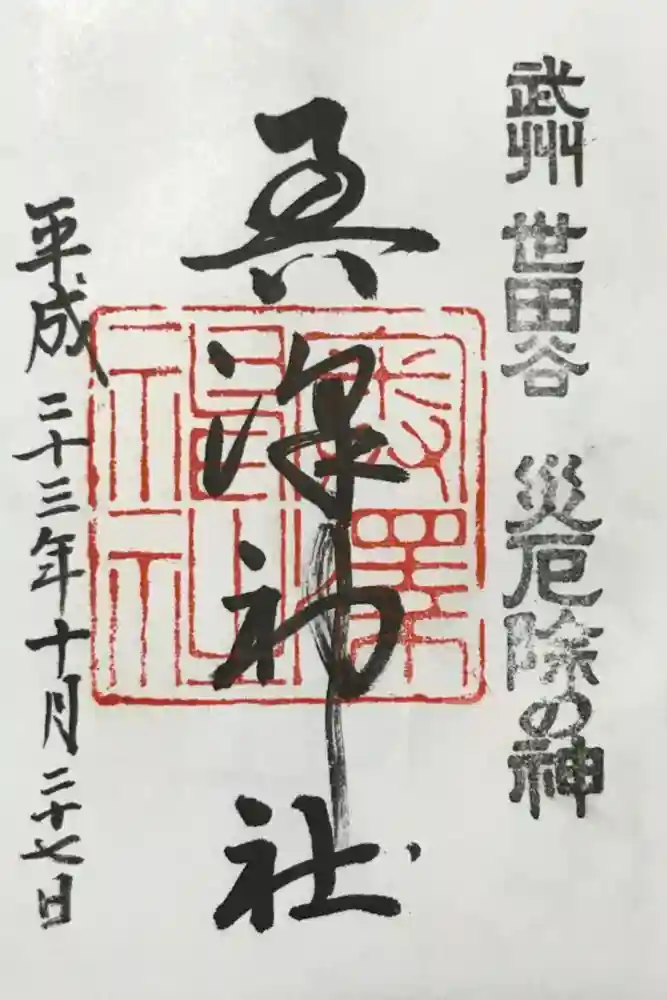 武州 世田谷 災厄除の神
奥澤神社
奥澤神社
平成二十三年十月二十七日